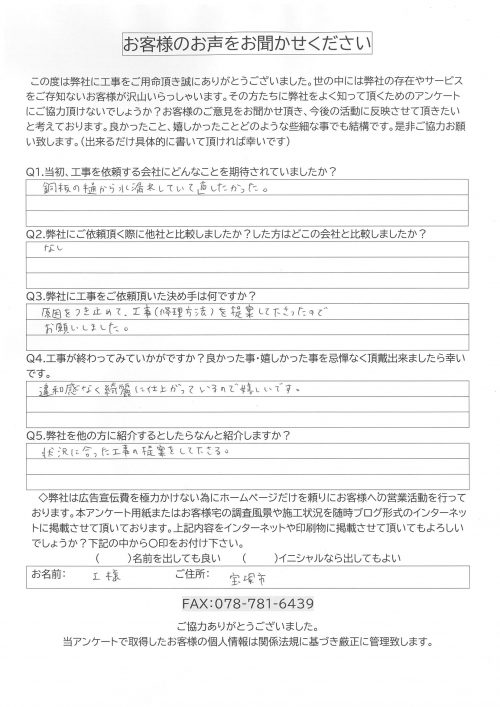 お客様のお声をお聞かせください
この度は弊社に工事をご用命頂き誠にありがとうございました。世の中には弊社の存在やサービス
をご存知ないお客様が沢山いらっしゃいます。その方たちに弊社をよく知って頂くためのアンケート
にご協力頂けないでしょうか？お客様のご意見をお聞かせ頂き、今後の活動に反映させて頂きたい
と考えております。良かったこと、嬉しかったことどのような些細な事でも結構です。是非ご協力お願
い致します。（出来るだけ具体的に書いて頂ければ幸いです）
Q1.当初、工事を依頼する会社にどんなことを期待されていましたか？
銅板の樋から水漏れしていて直したかった。
Q2.弊社にご依頼頂く際に他社と比較しましたか？した方はどこの会社と比較しましたか？
なし
Q3.弊社に工事をご依頼頂いた決め手は何ですか？
原因をつき止めて、工事（修理方法）を提案して下さったので
お願いしました。
Q4.工事が終わってみていかがですか？良かった事・嬉しかった事を忌憚なく頂戴出来ましたら幸い
です。
違和感なく綺麗に仕上がっているので嬉しいです。
Q5.弊社を他の方に紹介するとしたらなんと紹介しますか？
状況に合った工事の提案をして下さる。
◇弊社は広告宣伝費を極力かけない為にホームページだけを頼りにお客様への営業活動を行って
おります。本アンケート用紙またはお客様宅の調査風景や施工状況を随時ブログ形式のインターネッ
トに掲載させて頂いております。上記内容をインターネットや印刷物に掲載させて頂いてもよろしい
でしょうか？下記の中から〇印をお付け下さい。
（　　）名前を出しても良い　（　　）イニシャルなら出してもよい
お名前： I 様 ご住所： 宝塚市
FAX：078-781-6439
ご協力ありがとうございました。
当アンケートで取得したお客様の個人情報は関係法規に基づき厳正に管理致します。